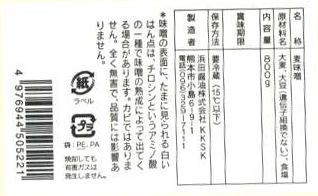 名称 麦味噌
原材料名 大麦、大豆(遺伝子組換でない)、食塩
内容量 800g
賞味期限
保存方法 要冷蔵(15℃以下)
製造者 浜田醤油株式会社 KKSK
熊本市小島6-9-1
電話096-329-7111
*味噌の表面に、たまに見られる白い
はん点は、「チロシン」というアミノ酸
の一種で味噌の熟成によって出てく
る場合があります。カビではありま
せん。全く無害で、品質には影響あ
りません。
紙
ラベル
プラ
袋:PE,PA
焼却しても
有害ガスは
発生しません。
4976944505221